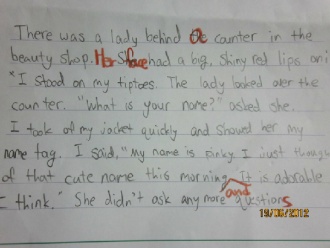 There was a lady behind the counter in the
beauty shop. Her face had a big, shiny red lips and
"I stood on my tiptoes. The lady looked over the
counter. "What is your name?" asked she.
I took of my jacket quickly and showed her my
name tag. I said, "My name is pinky. I just though
of that cute name this morning. It is adorable
I think." She didn't ask any more and questions
19/06/2012